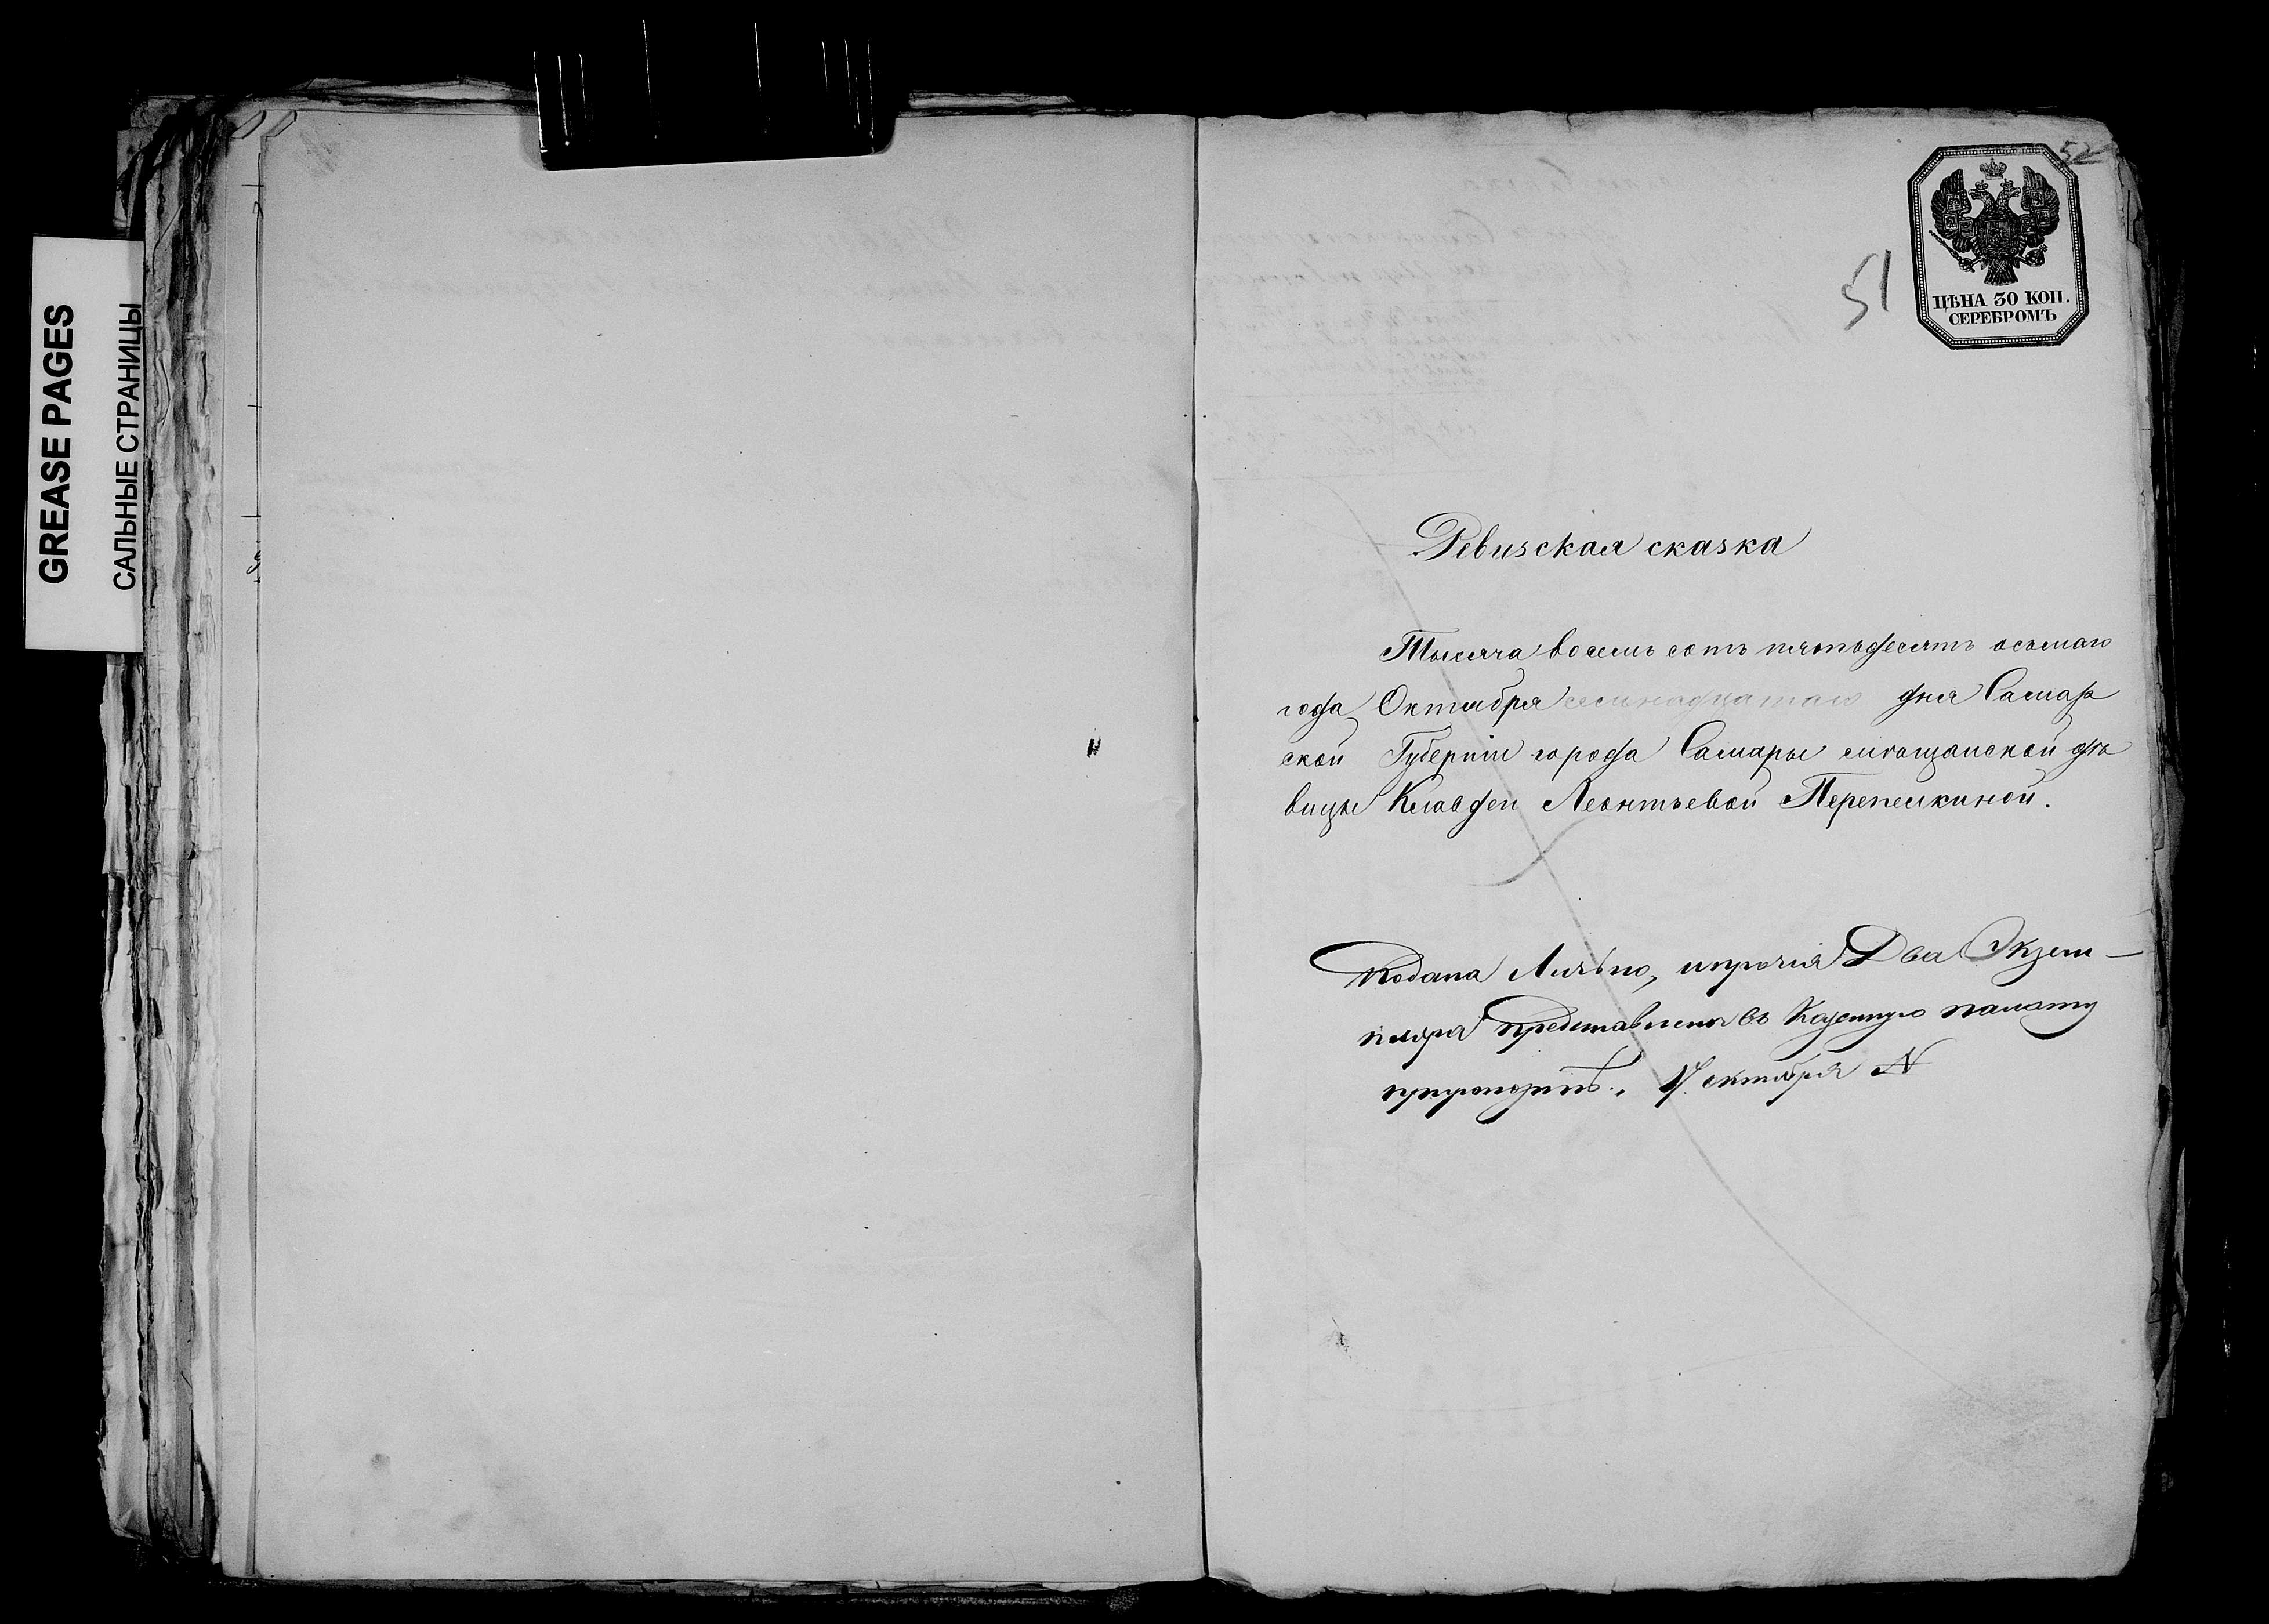 GREASE PAGES
САЛЬНЫЕ СТРАНИЦЫ
52
51
ЦѢНА 30 КОП.
СЕРЕБРОМЪ
Ревизская сказка
Тысяча восемь сотъ пятьдесятъ осьмаго
года Октября семьнадцатаго дня Самар
ской Губерніи города Самары мѣщанской дѣ
вицы Клавдеи Леонтьевой Перепелкиной.
Подана Лично, и прочія Два Экзем-
пляра представлены въ Казенную палату
17 октября N